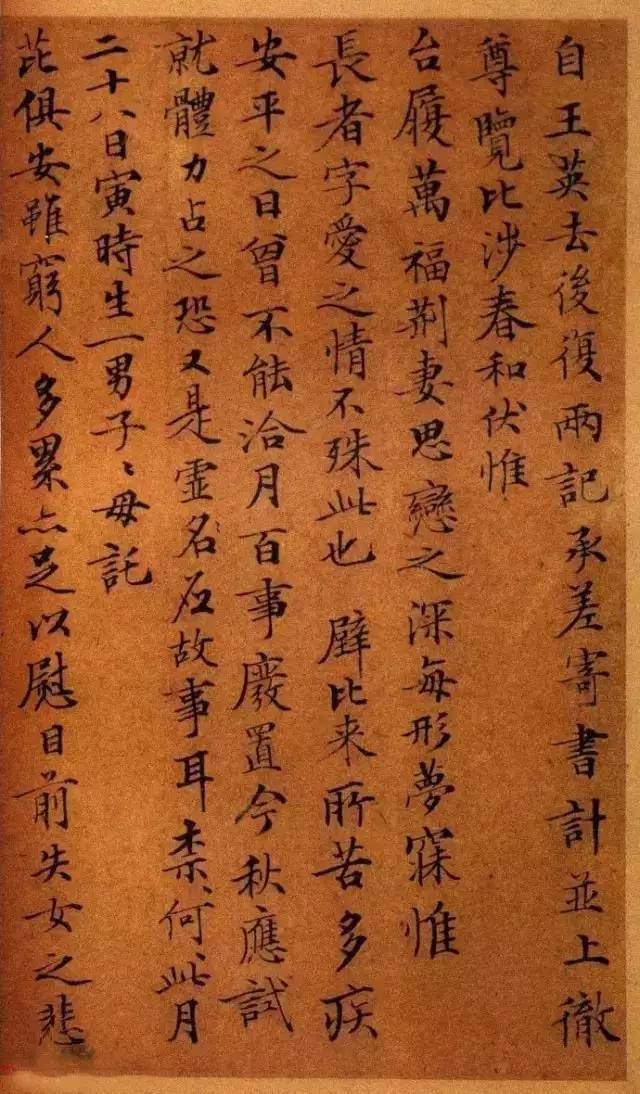 自王英去後復兩記承差寄書計並上徹
尊覽比涉春和伏惟
台履萬福荆妻思戀之深每形夢寐惟
長者字愛之情不殊此也 群比来所苦多疾
安平之日曾不能洽月百事廢置今秋應試
就體力占之恐又是虛名应故事耳柰何〻此月
二十八日寅時生一男子〻母託
芘俱安雖窮人多累亦足以慰目前失女之悲